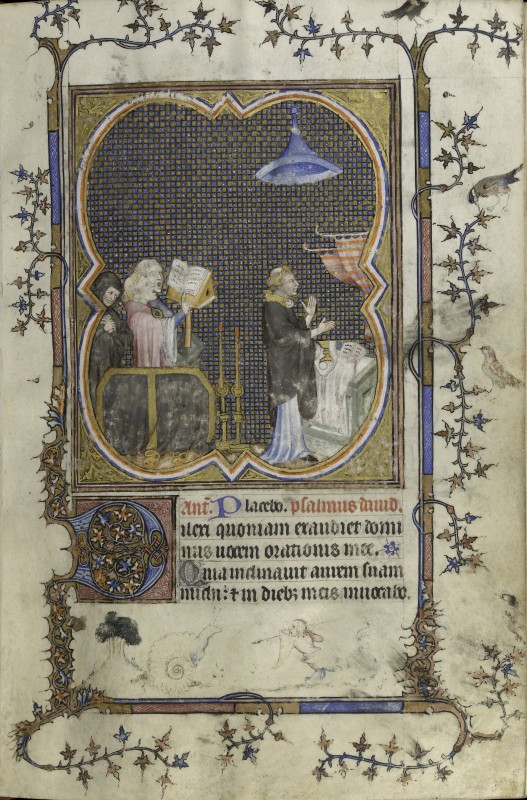 Ant̄. Placebo. psalmus dauid.
Dilexi quoniam exaudiet domi
nus uocem orationis mee.
Quia inclinauit aurem suam
michi: et in dieb; meis inuocabo.